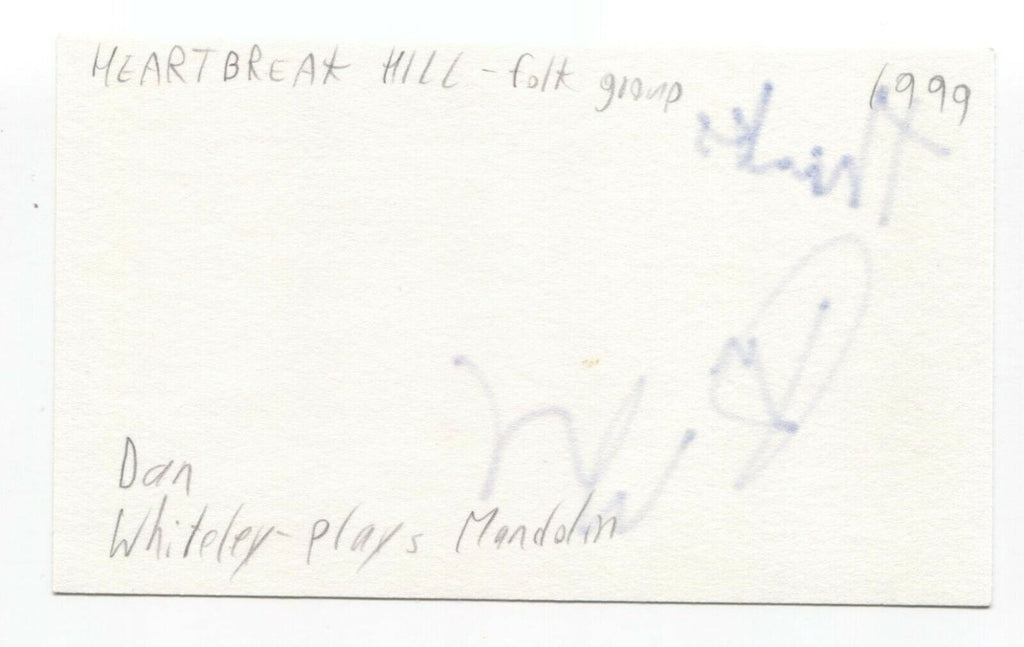 HEARTBREAK HILL - folk group 1999
Dan
Whiteley - plays Mandolin